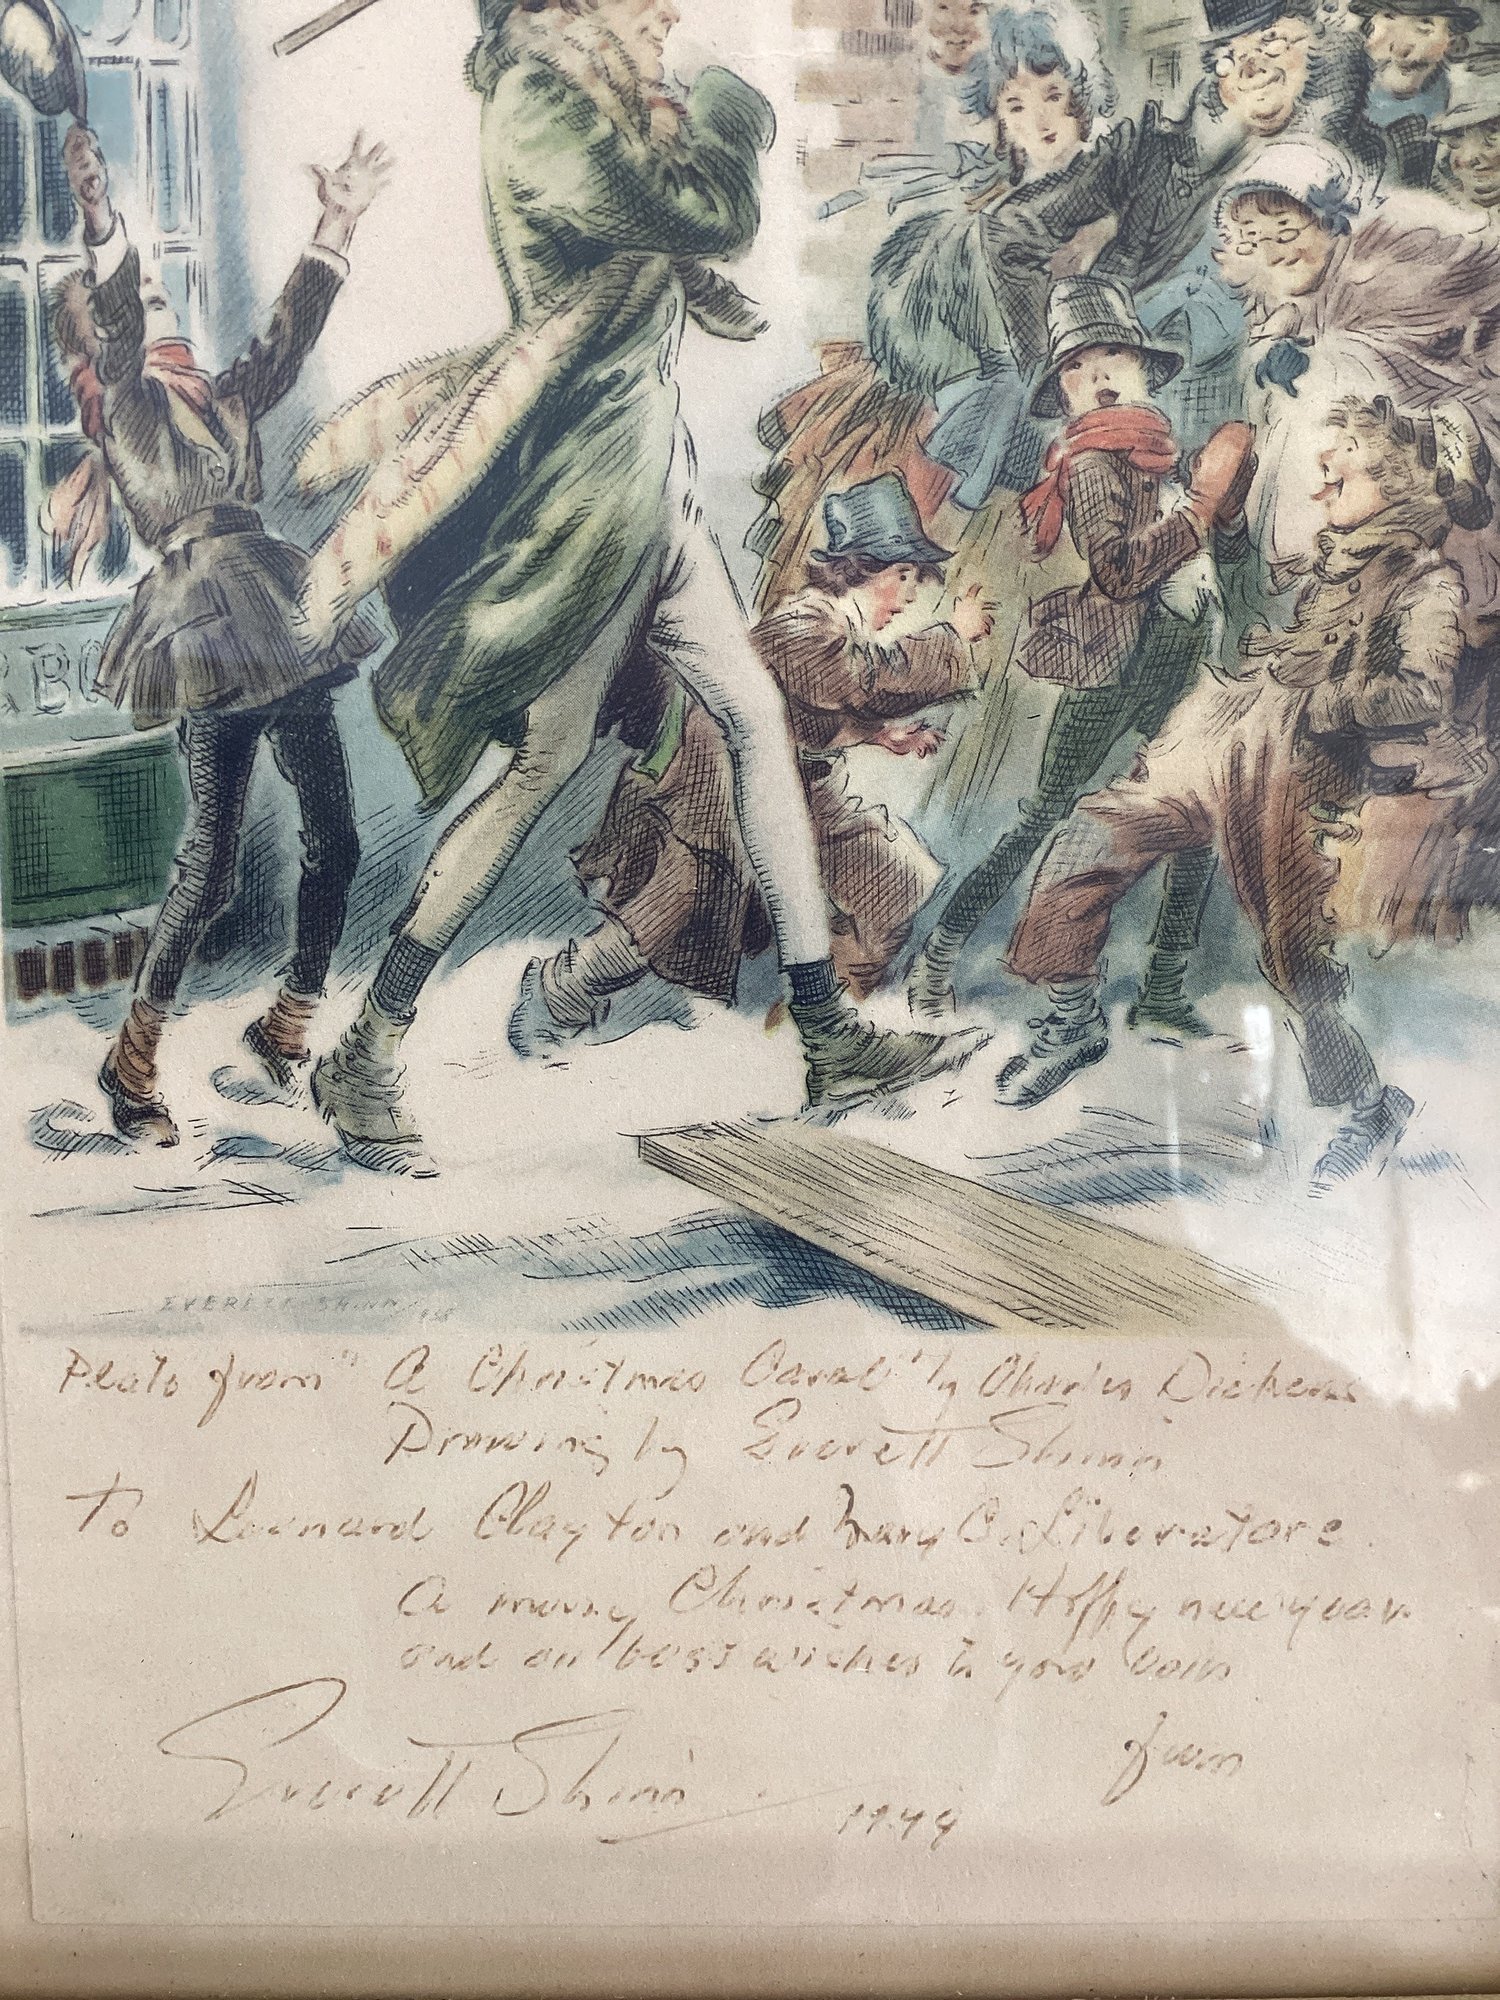 BO
EVERETT SHINN 1938
Plate from "A Christmas Carol" by Charles Dickens
Drawing by Everett Shinn
To Leonard Clayton and Mary C. Liberatore
A merry Christmas. Happy new year
and all best wishes to you both
from
Everett Shinn 1949